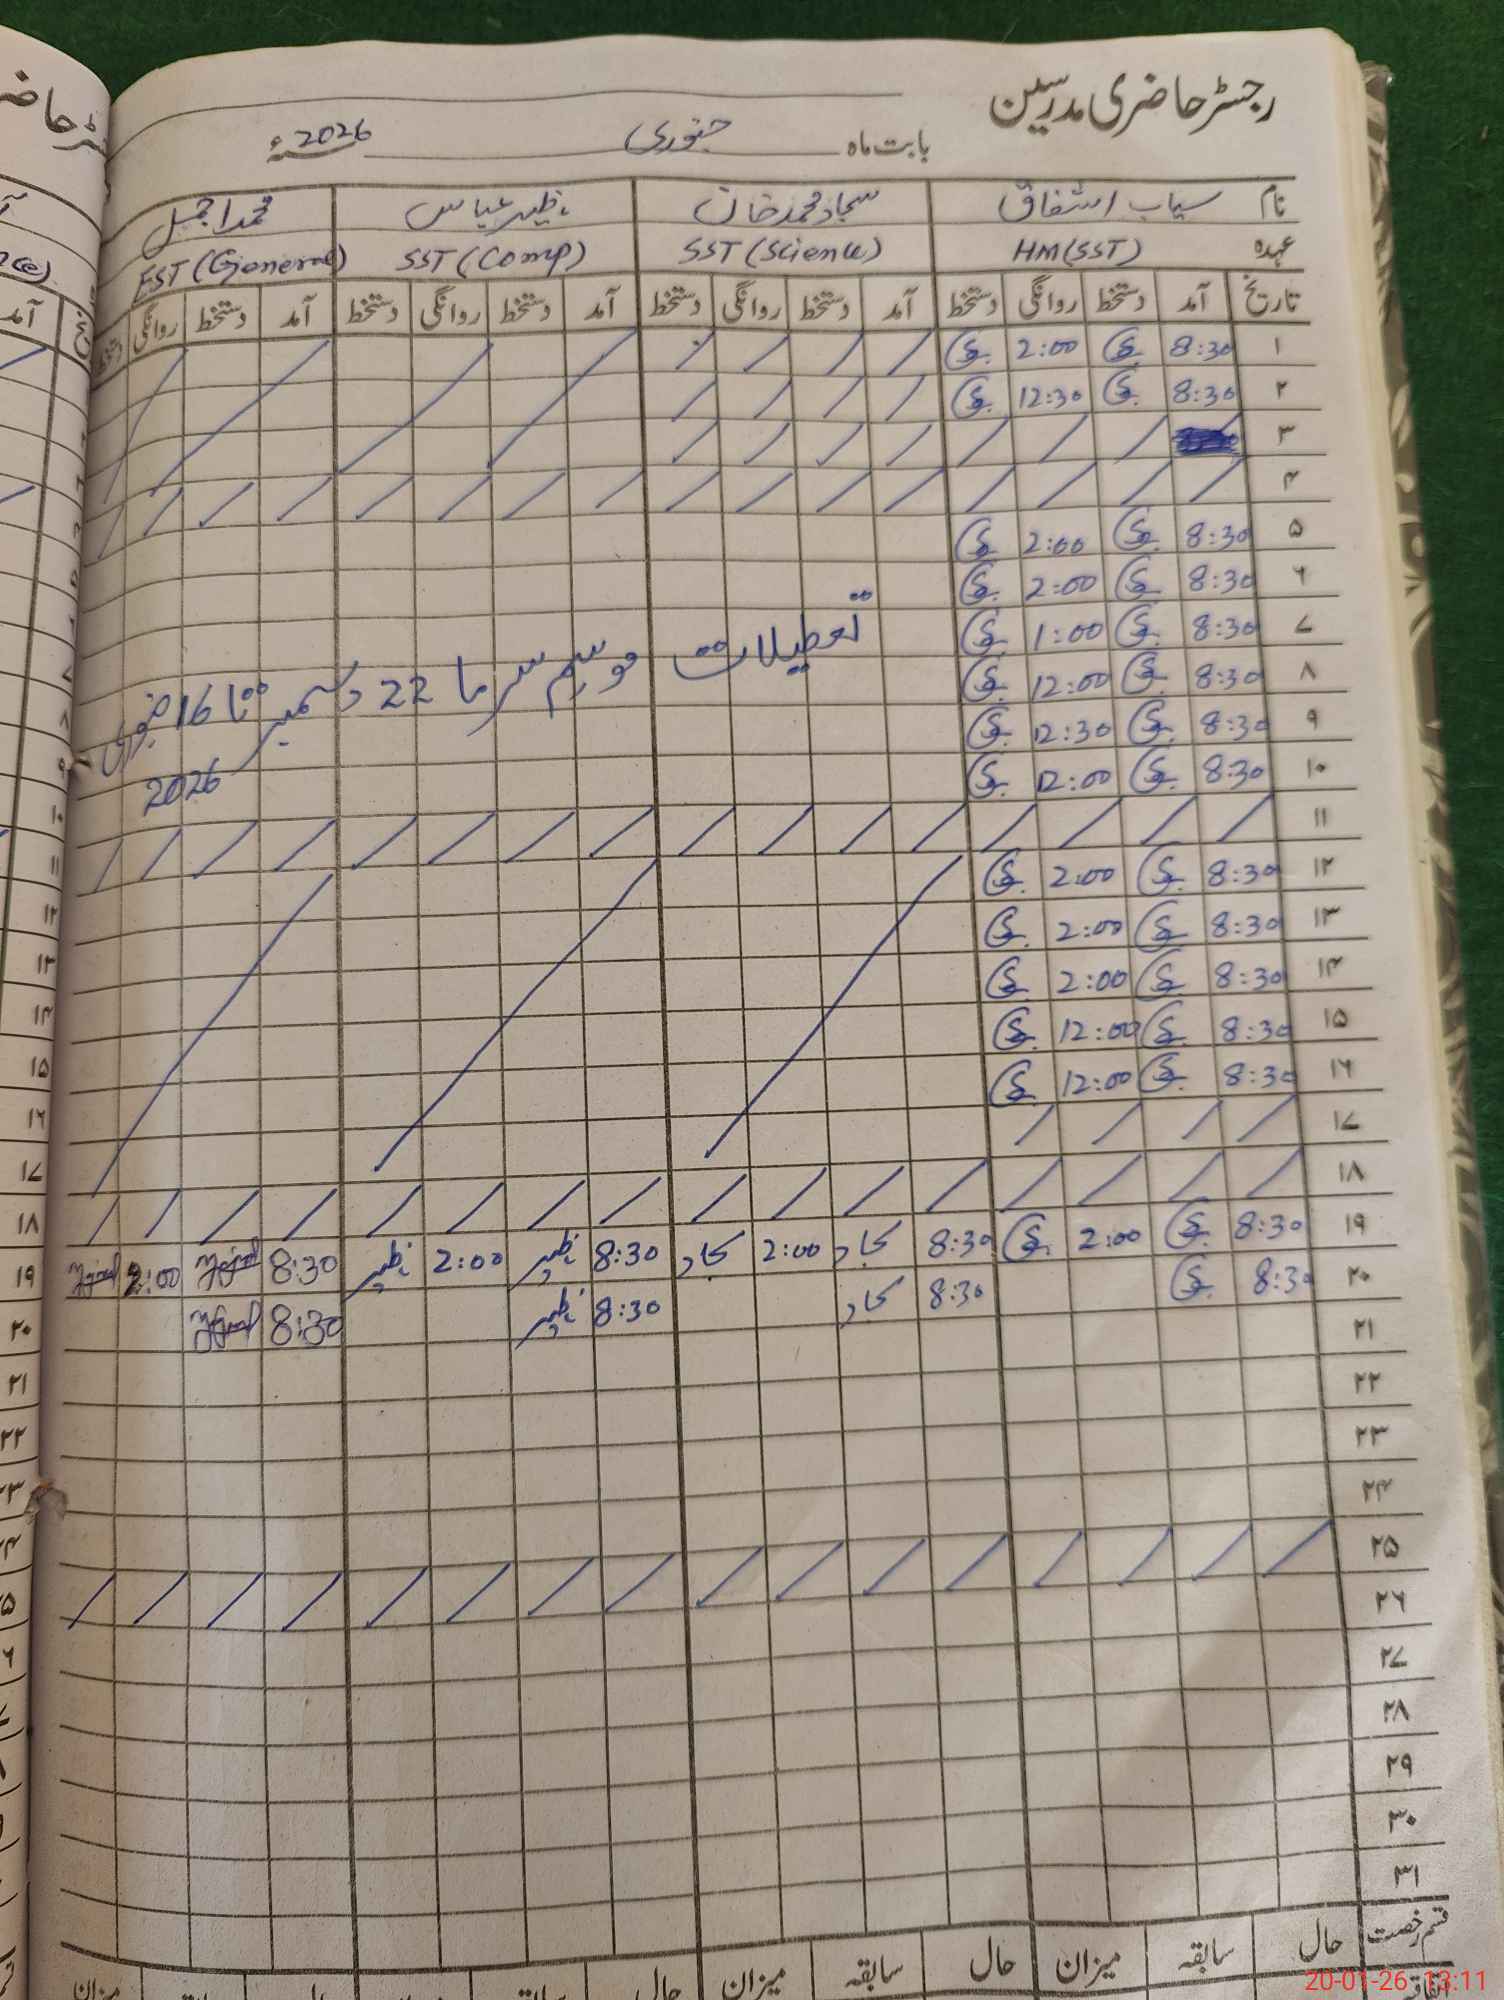 رجسٹر حاضری مدرسین
بابت ماہ جنوری 2026ء
نام سیاب اشفاق سجاد محمد خان نظیر عباس محمد اجمل
عہدہ HM(SST) SST(Science) SST(Comp) EST(General)
تاریخ آمد دستخط روانگی دستخط آمد دستخط روانگی دستخط آمد دستخط روانگی دستخط آمد دستخط روانگی دستخط
۱ 8:30 2:00
۲ 8:30 12:30
۳
۴
۵ 8:30 2:00
۶ 8:30 2:00
۷ 8:30 1:00
تعطیلات موسم سرما 22 دسمبر تا 16 جنوری
2026
۸ 8:30 12:00
۹ 8:30 12:30
۱۰ 8:30 12:00
۱۱
۱۲ 8:30 2:00
۱۳ 8:30 2:00
۱۴ 8:30 2:00
۱۵ 8:30 12:00
۱۶ 8:30 12:00
۱۷
۱۸
۱۹ 8:30 2:00 8:30 سجاد 2:00 سجاد 8:30 نظیر 2:00 نظیر 8:30 2:00
۲۰ 8:30 8:30 سجاد 8:30 نظیر 8:30
۲۱
۲۲
۲۳
۲۴
۲۵
۲۶
۲۷
۲۸
۲۹
۳۰
۳۱
قسم رخصت حال سابقہ میزان حال سابقہ میزان حال میزان
اتفاقیہ
20-01-26 13:11